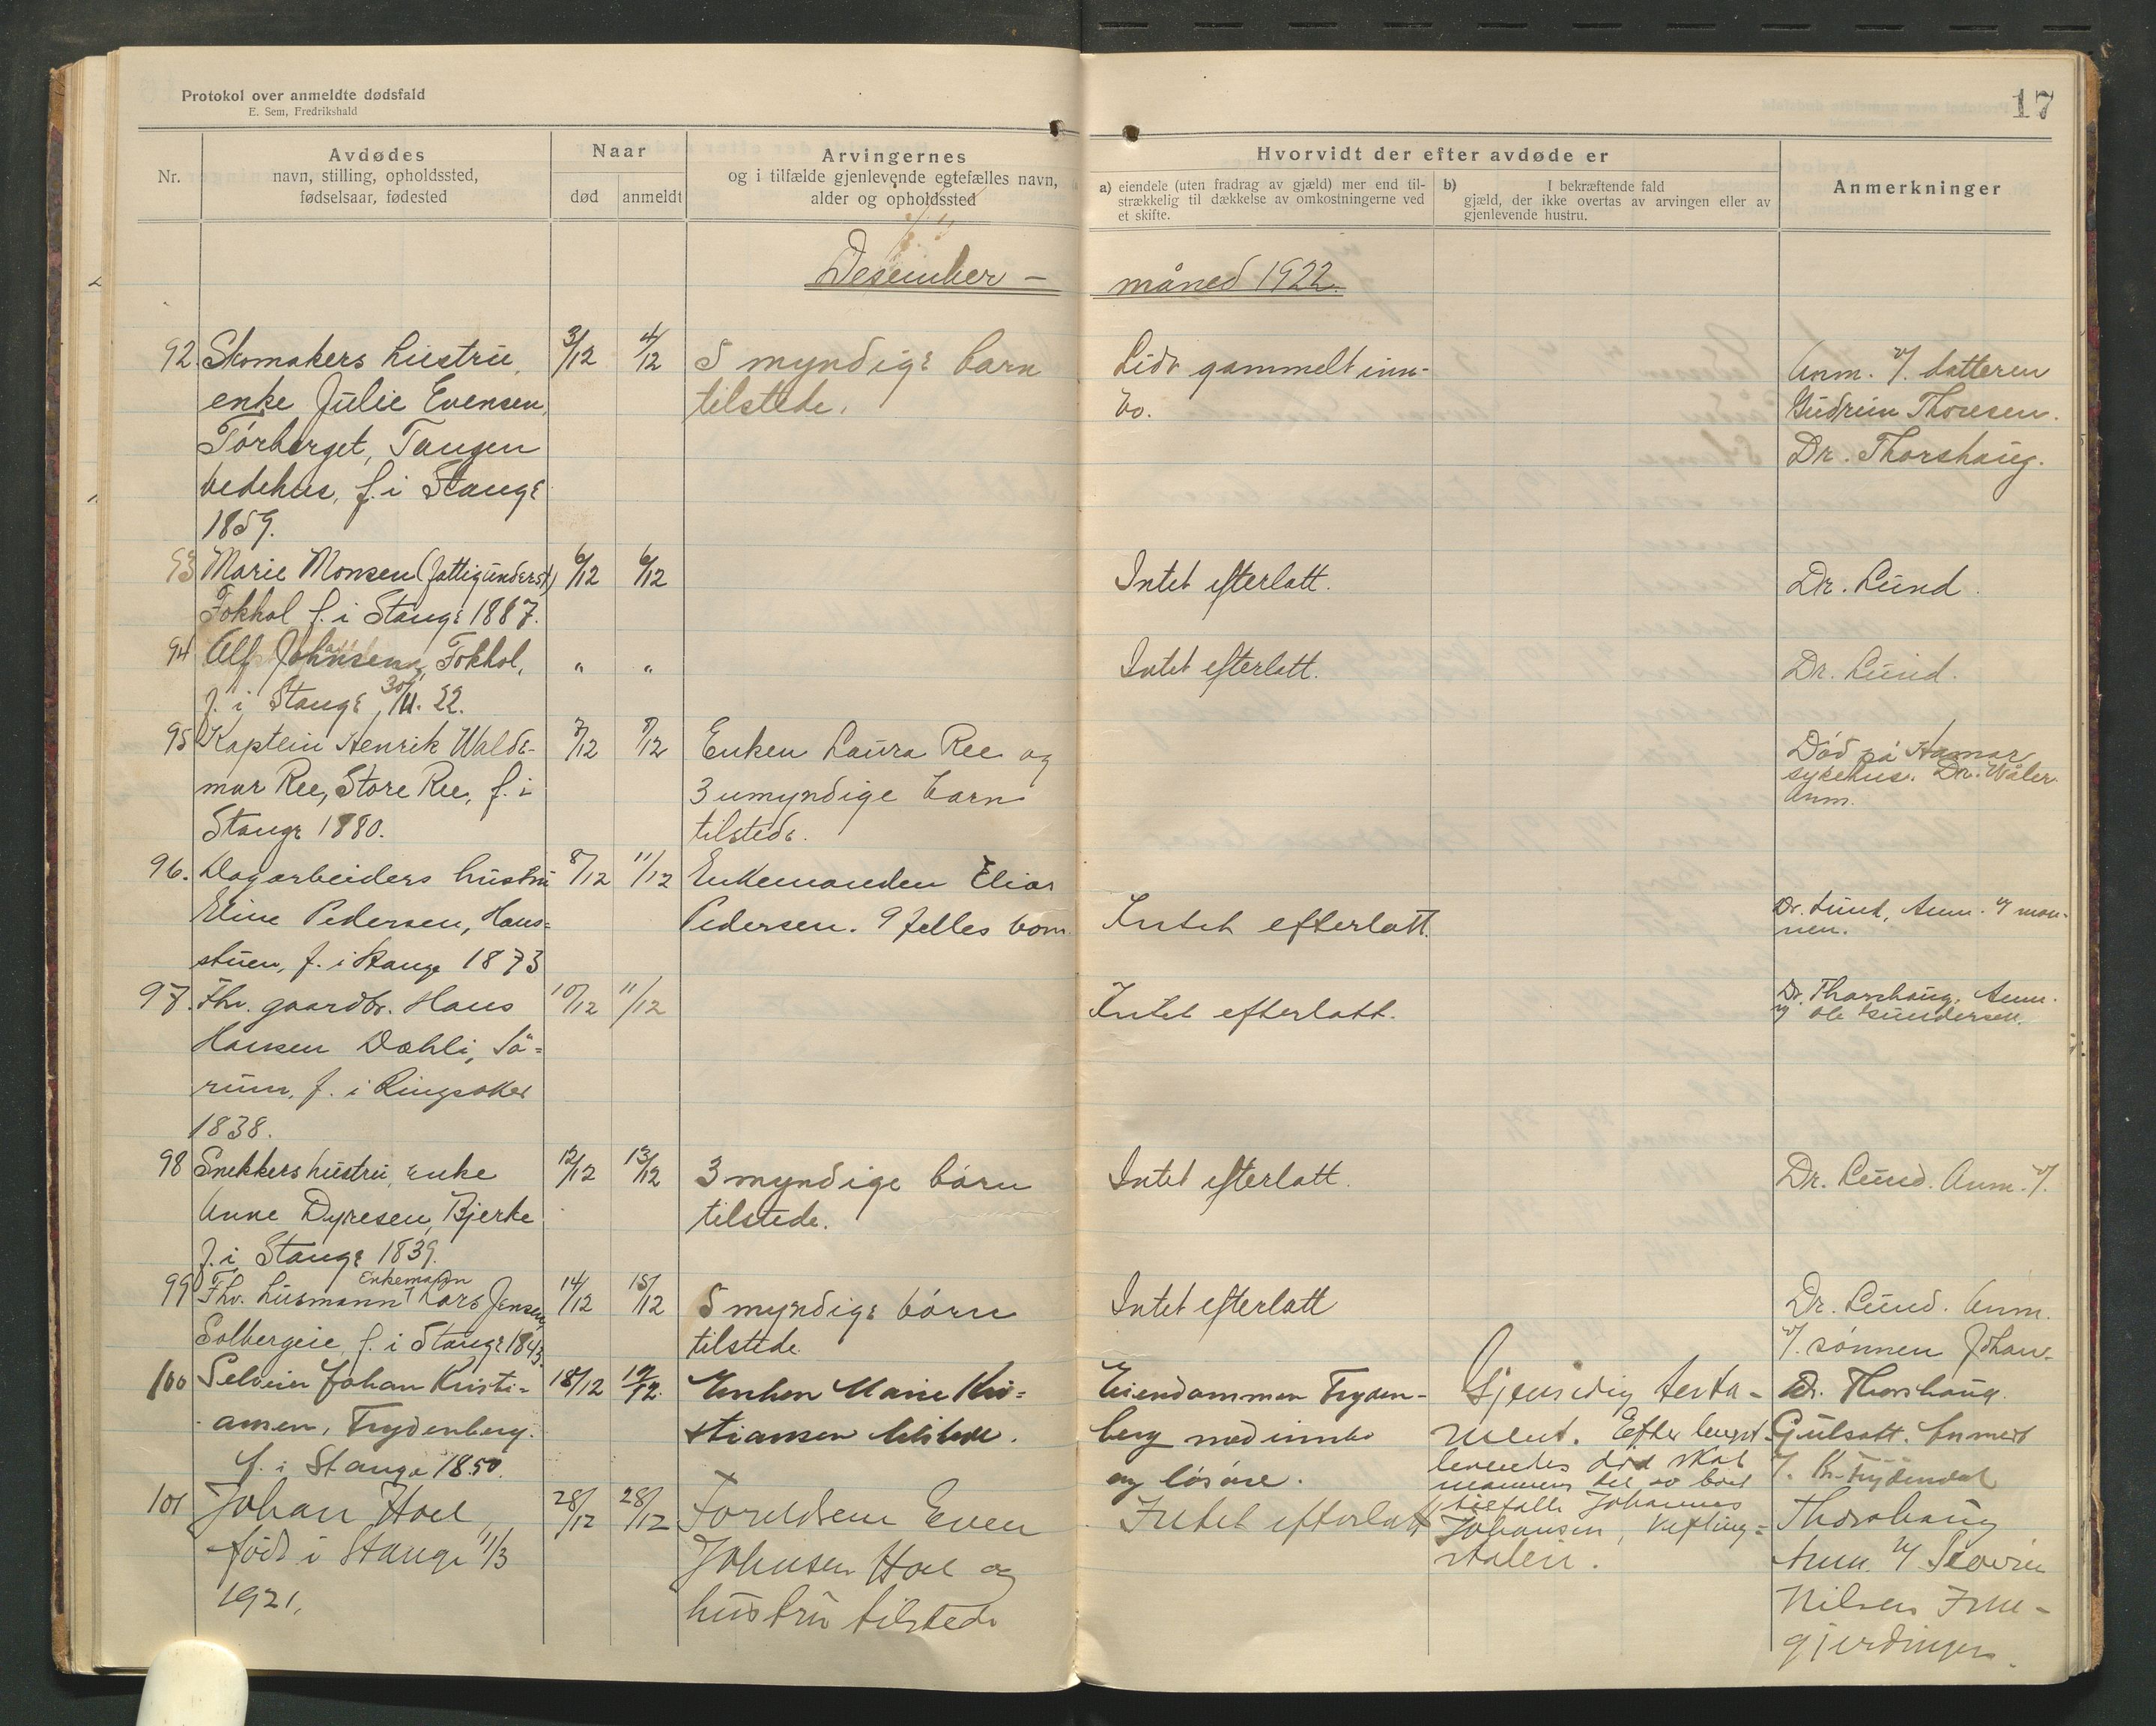 Protokol over anmeldte dødsfald
E. Sem, Fredrikshald
17
Nr.
Avdødes
navn, stilling, opholdssted,
fødselsaar, fødested
Naar
død
anmeldt
Arvingernes
og i tilfælde gjenlevende egtefælles navn,
alder og opholdssted
Hvorvidt der efter avdøde er
a) eiendele (uten fradrag av gjæld) mer end til-
strækkelig til dækkelse av omkostningerne ved
et skifte.
b) I bekræftende fald
gjæld, der ikke overtas av arvingen eller av
gjenlevende hustru.
Anmerkninger
Desember –
måned 1922.
92. Skomakers hustru,
enke Julie Evensen,
Tørberget, Tangen
bedehus, f. i Stange
1859.
3/12
4/12
5 myndige barn
tilstede.
Lidt gammelt inn-
bo.
Anm. v/. datteren
Gudrun Thoresen.
Dr. Thorshaug.
93 Marie Monsen (fattigunderst)
Fokhol f. i Stange 1887.
6/12
6/12
Intet efterlatt.
Dr. Lund.
94 Alf Johnsen, Fokhol,
f. i Stange, 30/11. 22.
"
"
Intet efterlatt.
Dr. Lund.
95 Kaptein Henrik Walde-
mar Ree, Store Ree, f. i
Stange 1880.
7/12
8/12
Enken Laura Ree og
3 umyndige barn
tilstede.
Død på Hamar
sykehus. Dr. Wåler
anm.
96. Dagarbeiders hustru
Eline Pedersen, Hans=
stuen, f. i Stange 1873
8/12
11/12
Enkemanden Elias
Pedersen. 9 felles born.
Intet efterlatt.
Dr. Lund, Anm. v/ man-
nen.
97. Fhv. gaardbr. Hans
Hansen Dæhli, Sö=
rum, f. i Ringsaker
1838.
10/12
11/12
Intet efterlatt.
Dr. Thorshaug. Anm.
v/ Ole Gundersen.
98 Snekkers hustru, enke
Anne Dyresen, Bjerke
f. i Stange 1839.
12/12
13/12
3 myndige børn
tilstede.
Intet efterlatt.
Dr. Lund. Anm. v/.
Enkemann
99 Fhv. husmann Lars Jensen,
Solbergeie, f. i Stange 1843.
14/12
15/12
5 myndige børn
tilstede.
Intet efterlatt
Dr. Lund. Anm.
v/. sønnen Johan.
100 Selveier Johan Kristi=
ansen, Frydenberg.
f. i Stange 1850.
18/12
19/12.
Enken Marie Kri=
stiansen tilstede.
Eiendommen Fryden-
berg med innbo
og løsøre.
Gjensidig testa-
ment. Efter lengst
levendes död skal
tilfalle Johannes
Johansen,
Dr. Thorshaug.
101 Johan Hoel,
født i Stange 11/3
1921.
28/12
28/12
Foreldrene Even
Johnsen Hoel og
hustru tilstede
Intet efterlatt
Thorshaug
Anm. v/
Nilsen
gjerdingen.